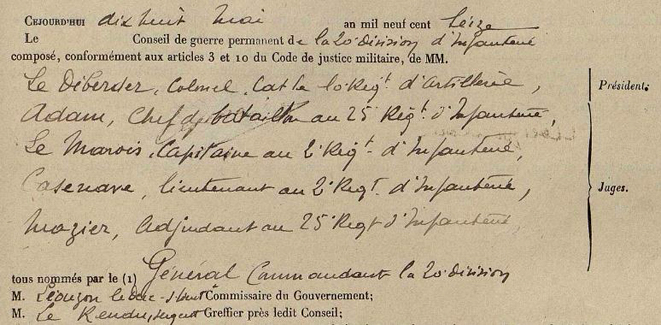 CEJOURD'HUI dix huit Mai an mil neuf cent Seize
Le Conseil de guerre permanent de la 20e division d'Infanterie
composé, conformément aux articles 3 et 10 du Code de justice militaire, de MM.
Le Diberder, Colonel, Cdt le 10e Régt d'Artillerie, Président.
Adam, Chef de bataillon au 25e Régt d'Infanterie,
Le Marois, Capitaine au 2e Régt d'Infanterie,
Casenave, lieutenant au 2e Régt d'Infanterie, Juges.
Mazier, Adjudant au 25e Régt d'Infanterie
tous nommés par le (1) Général Commandant la 20e division
M. Léouzon le Duc Commissaire du Gouvernement;
M. Le Rendu, sergent Greffier près ledit Conseil;